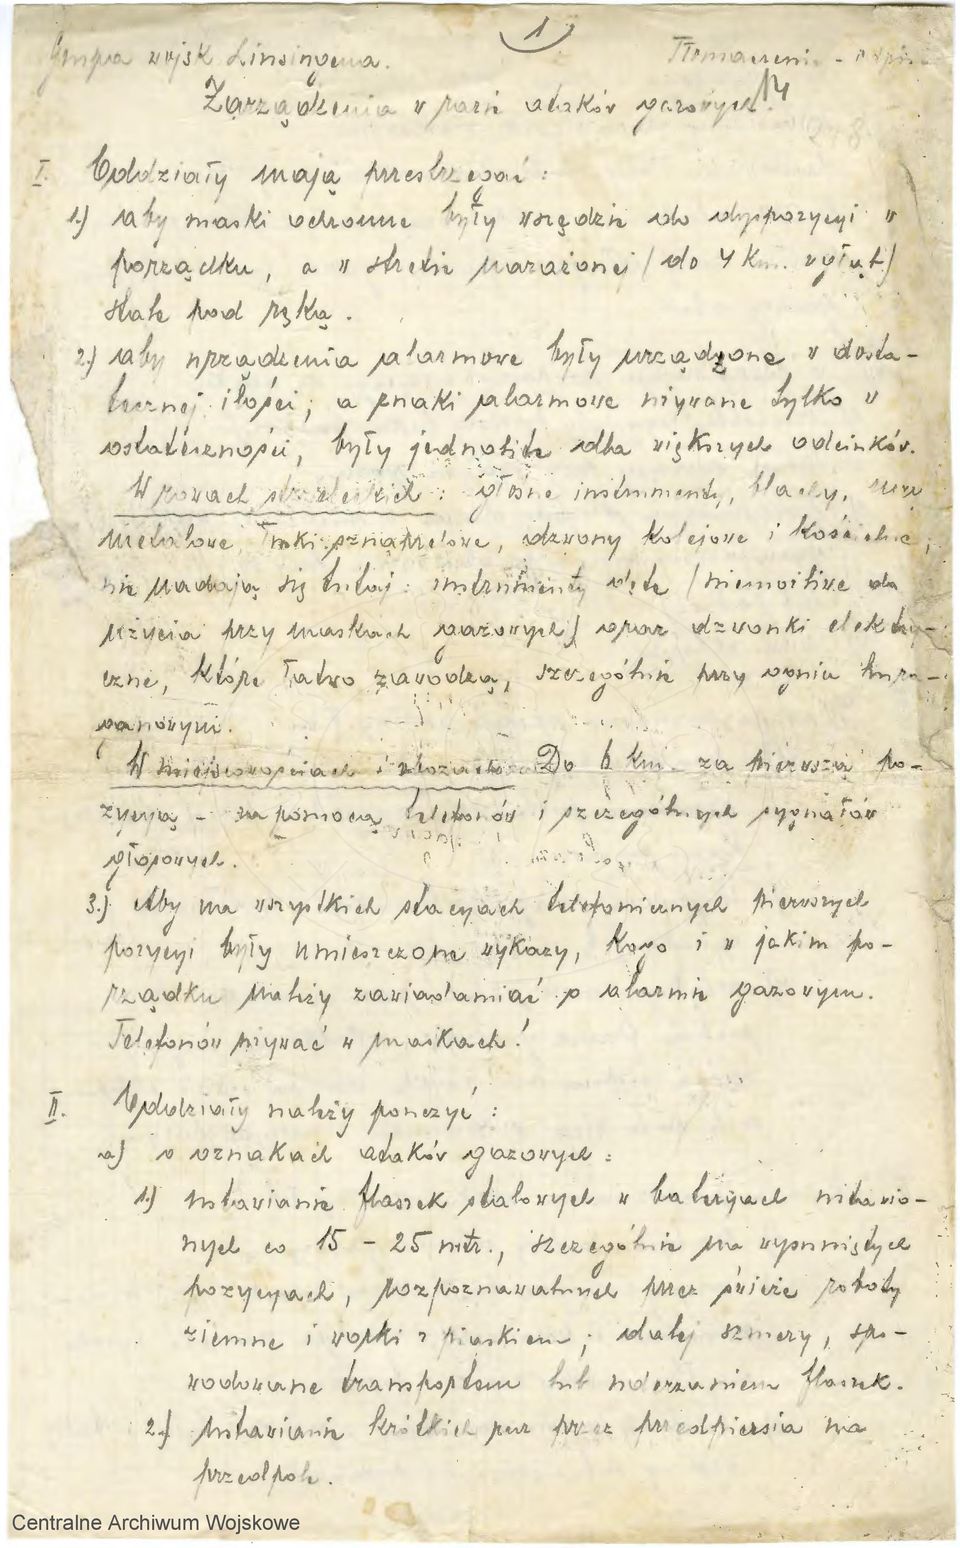 1
Grupa wojsk Linsingena. Tłomaczenie - odpis
Zarządzenia w razie ataków gazowych.
14
I. Oddziały mają przestrzegać:
1.) aby maski ochronne były wszędzie do dyspozycyi w
porządku, a w strefie zarażonej / do 4 Km. w głąb /
stale pod ręką.
2.) aby urządzenia alarmowe były urządzone w dosta-
tecznej ilości; a znaki alarmowe używane tylko w
ostateczności, były jednolite dla większych odcinków.
W rowach strzeleckich: głośne instrumenty, blachy,
metalowe, dzwony kolejowe i kościelne;
nie nadają się tutaj: instrumenty dęte / niemożliwe do
użycia przy maskach gazowych / oraz dzwonki elektry-
czne, które łatwo zawodzą, szczególnie przy ogniu hura-
ganowym.
W miejscowościach i obozach Do 6 Km. za pierwszą po-
zycyą - za pomocą telefonów i szczególnych sygnałów
głosowych.
3.) Aby na wszystkich stacyach telefonicznych pierwszych
pozycyi były umieszczone wykazy, Kogo i w jakim po-
rządku należy zawiadamiać o alarmie gazowym.
Telefonów używać w maskach!
II. Oddziały należy pouczyć:
a) o oznakach ataków gazowych:
1.) ustawianie flaszek stalowych w bateryach ustawio-
nych co 15 - 25 mtr., szczególnie na wysuniętych
pozycyach, rozpoznawalnych przez świeże roboty
ziemne i worki z piaskiem; dalej szmery, spo-
wodowane transportem lub uderzaniem flaszek.
2.) Ustawianie krótkich rur przez przedpiersia na
przedpole.
Centralne Archiwum Wojskowe